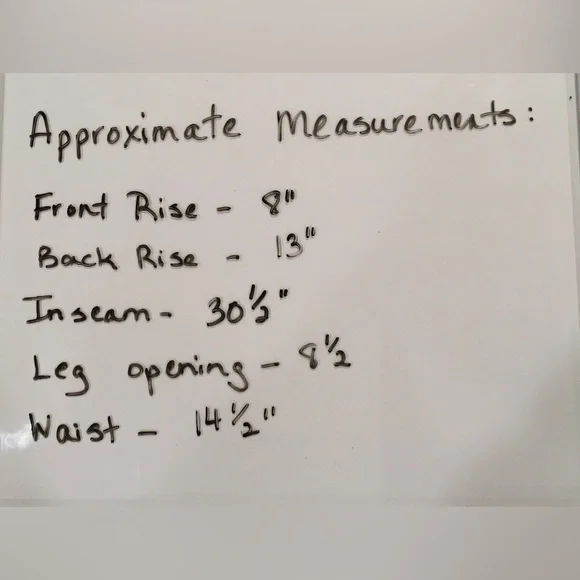 Approximate Measurements:
Front Rise - 8"
Back Rise - 13"
Inseam - 30 1/2"
Leg opening - 8 1/2
Waist - 14 1/2"